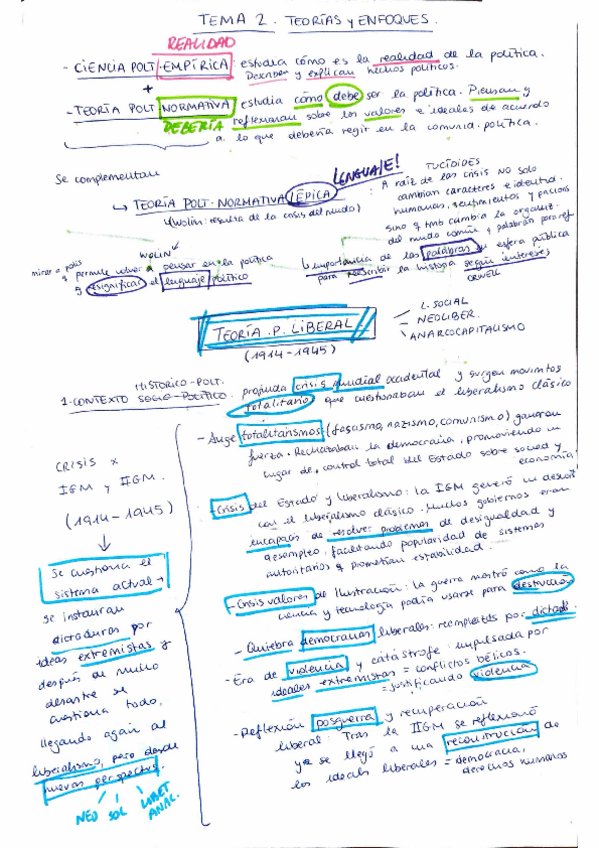 TEMA 2. TEORÍAS y ENFOQUES.
REALIDAD
- CIENCIA POLT. EMPÍRICA: estudia cómo es la realidad de la política.
Describen y explican hechos políticos.
+
- TEORÍA POLT NORMATIVA estudia cómo debe ser la política. Piensan y
DEBERÍA reflexionan sobre los valores e ideales de acuerdo
a lo que debería regir en la comunid. política.
Se complementan
LENGUAJE!
↳ TEORÍA POLT-NORMATIVA ÉPICA
(Wolin: resulta de la crisis del mundo)
TUCÍDIDES
: A raíz de las crisis no solo
cambian caracteres e identid.
humanas,
sino q tmb cambia la organiz.
del mundo común y palabras para ref
WOLIN
q permite volver a pensar en la política
y resignificar el lenguaje político
↳ importancia de las palabras en esfera pública
para reescribir la historia según intereses
ORWELL
TEORÍA .P. LIBERAL
(1914-1945)
L. SOCIAL
NEOLIBER.
ANARCOCAPITALISMO
HISTÓRICO-POLT.
1. CONTEXTO SOCIO-POLÍTICO. profunda crisis mundial occidental y surgen movimientos
totalitarios que cuestionaban el liberalismo clásico
- Auge totalitarismos (fascismo, nazismo, comunismo) ganaron
fuerza. Rechazaban la democracia, promoviendo en
lugar de, control total del Estado sobre socied y
economía
CRISIS x
IGM y IIGM.
(1914-1945)
↓
Se cuestiona el
sistema actual →
se instauran
dictaduras por
ideas extremistas y
después de mucho
desastre se
cuestiona todo,
llegando again al
liberalismo, pero desde
nuevas perspectivas.
NEO SOL LIBERT
ANAC.
- Crisis del Estado y liberalismo: la IGM generó un descont
con el liberalismo clásico. Muchos gobiernos eran
incapaces de resolver problemas de desigualdad y
desempleo, facilitando popularidad de sistemas
autoritarios q prometían estabilidad.
- Crisis valores de Ilustración: la guerra mostró como la
ciencia y tecnología podía usarse para destrucción
- Quiebra democracias liberales: reemplazads por dictad.
- Era de violencia y catástrofe: impulsada por
ideales extremistas = conflictos bélicos.
= justificando violencia
- Reflexión posguerra y recuperación
liberal: Tras la IIGM se reflexionó
y se llegó a una reconstrucción de
los ideals liberales = democracia,
derechos humanos